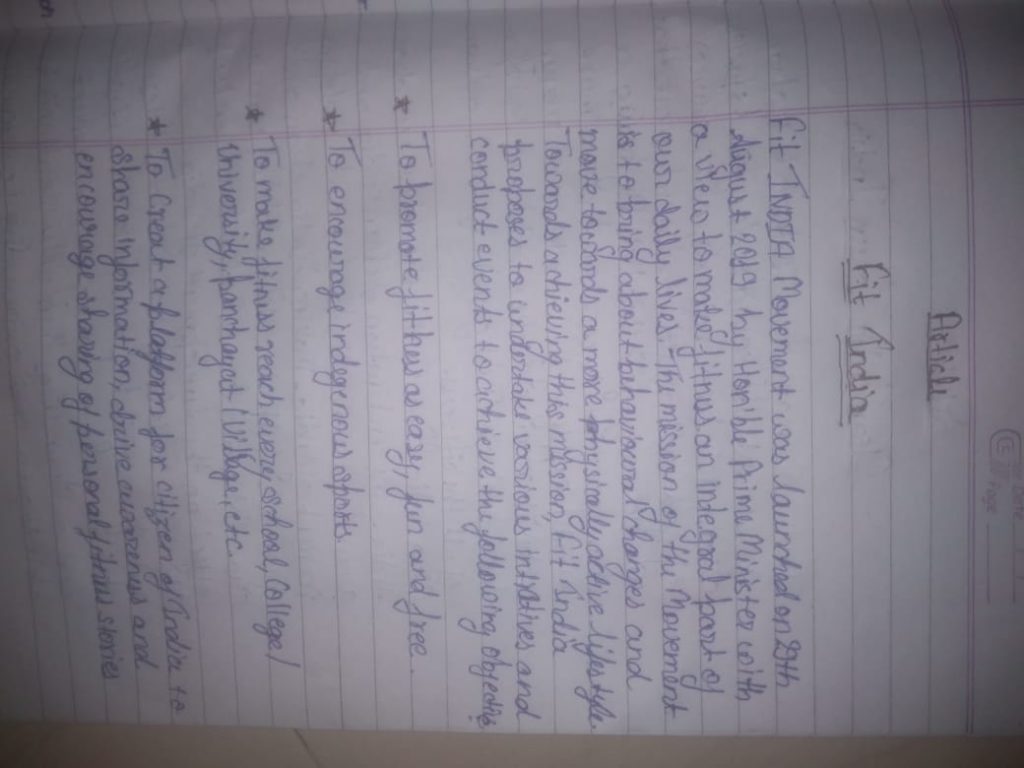 Date
Page
Article
Fit India
Fit INDIA Movement was launched on 29th
August 2019 by Hon'ble Prime Minister with
a view to make fitnes an integral part of
our daily lives. The mission of the Movement
is to bring about behavioural changes and
move towards a more physically active lifestyle.
Towards achieving this mission, Fit India
proposes to undertake various initiatives and
conduct events to achieve the following objectives
★ To promote fitnes as easy, fun and free.
★ To encourage indegenous sports
★ To make fitness reach every school, College/
University, panchayat/Village, etc.
★ To Creat a platform for citizen of India to
Share information, drive awarenes and
encourage sharing of personal fitnus stories